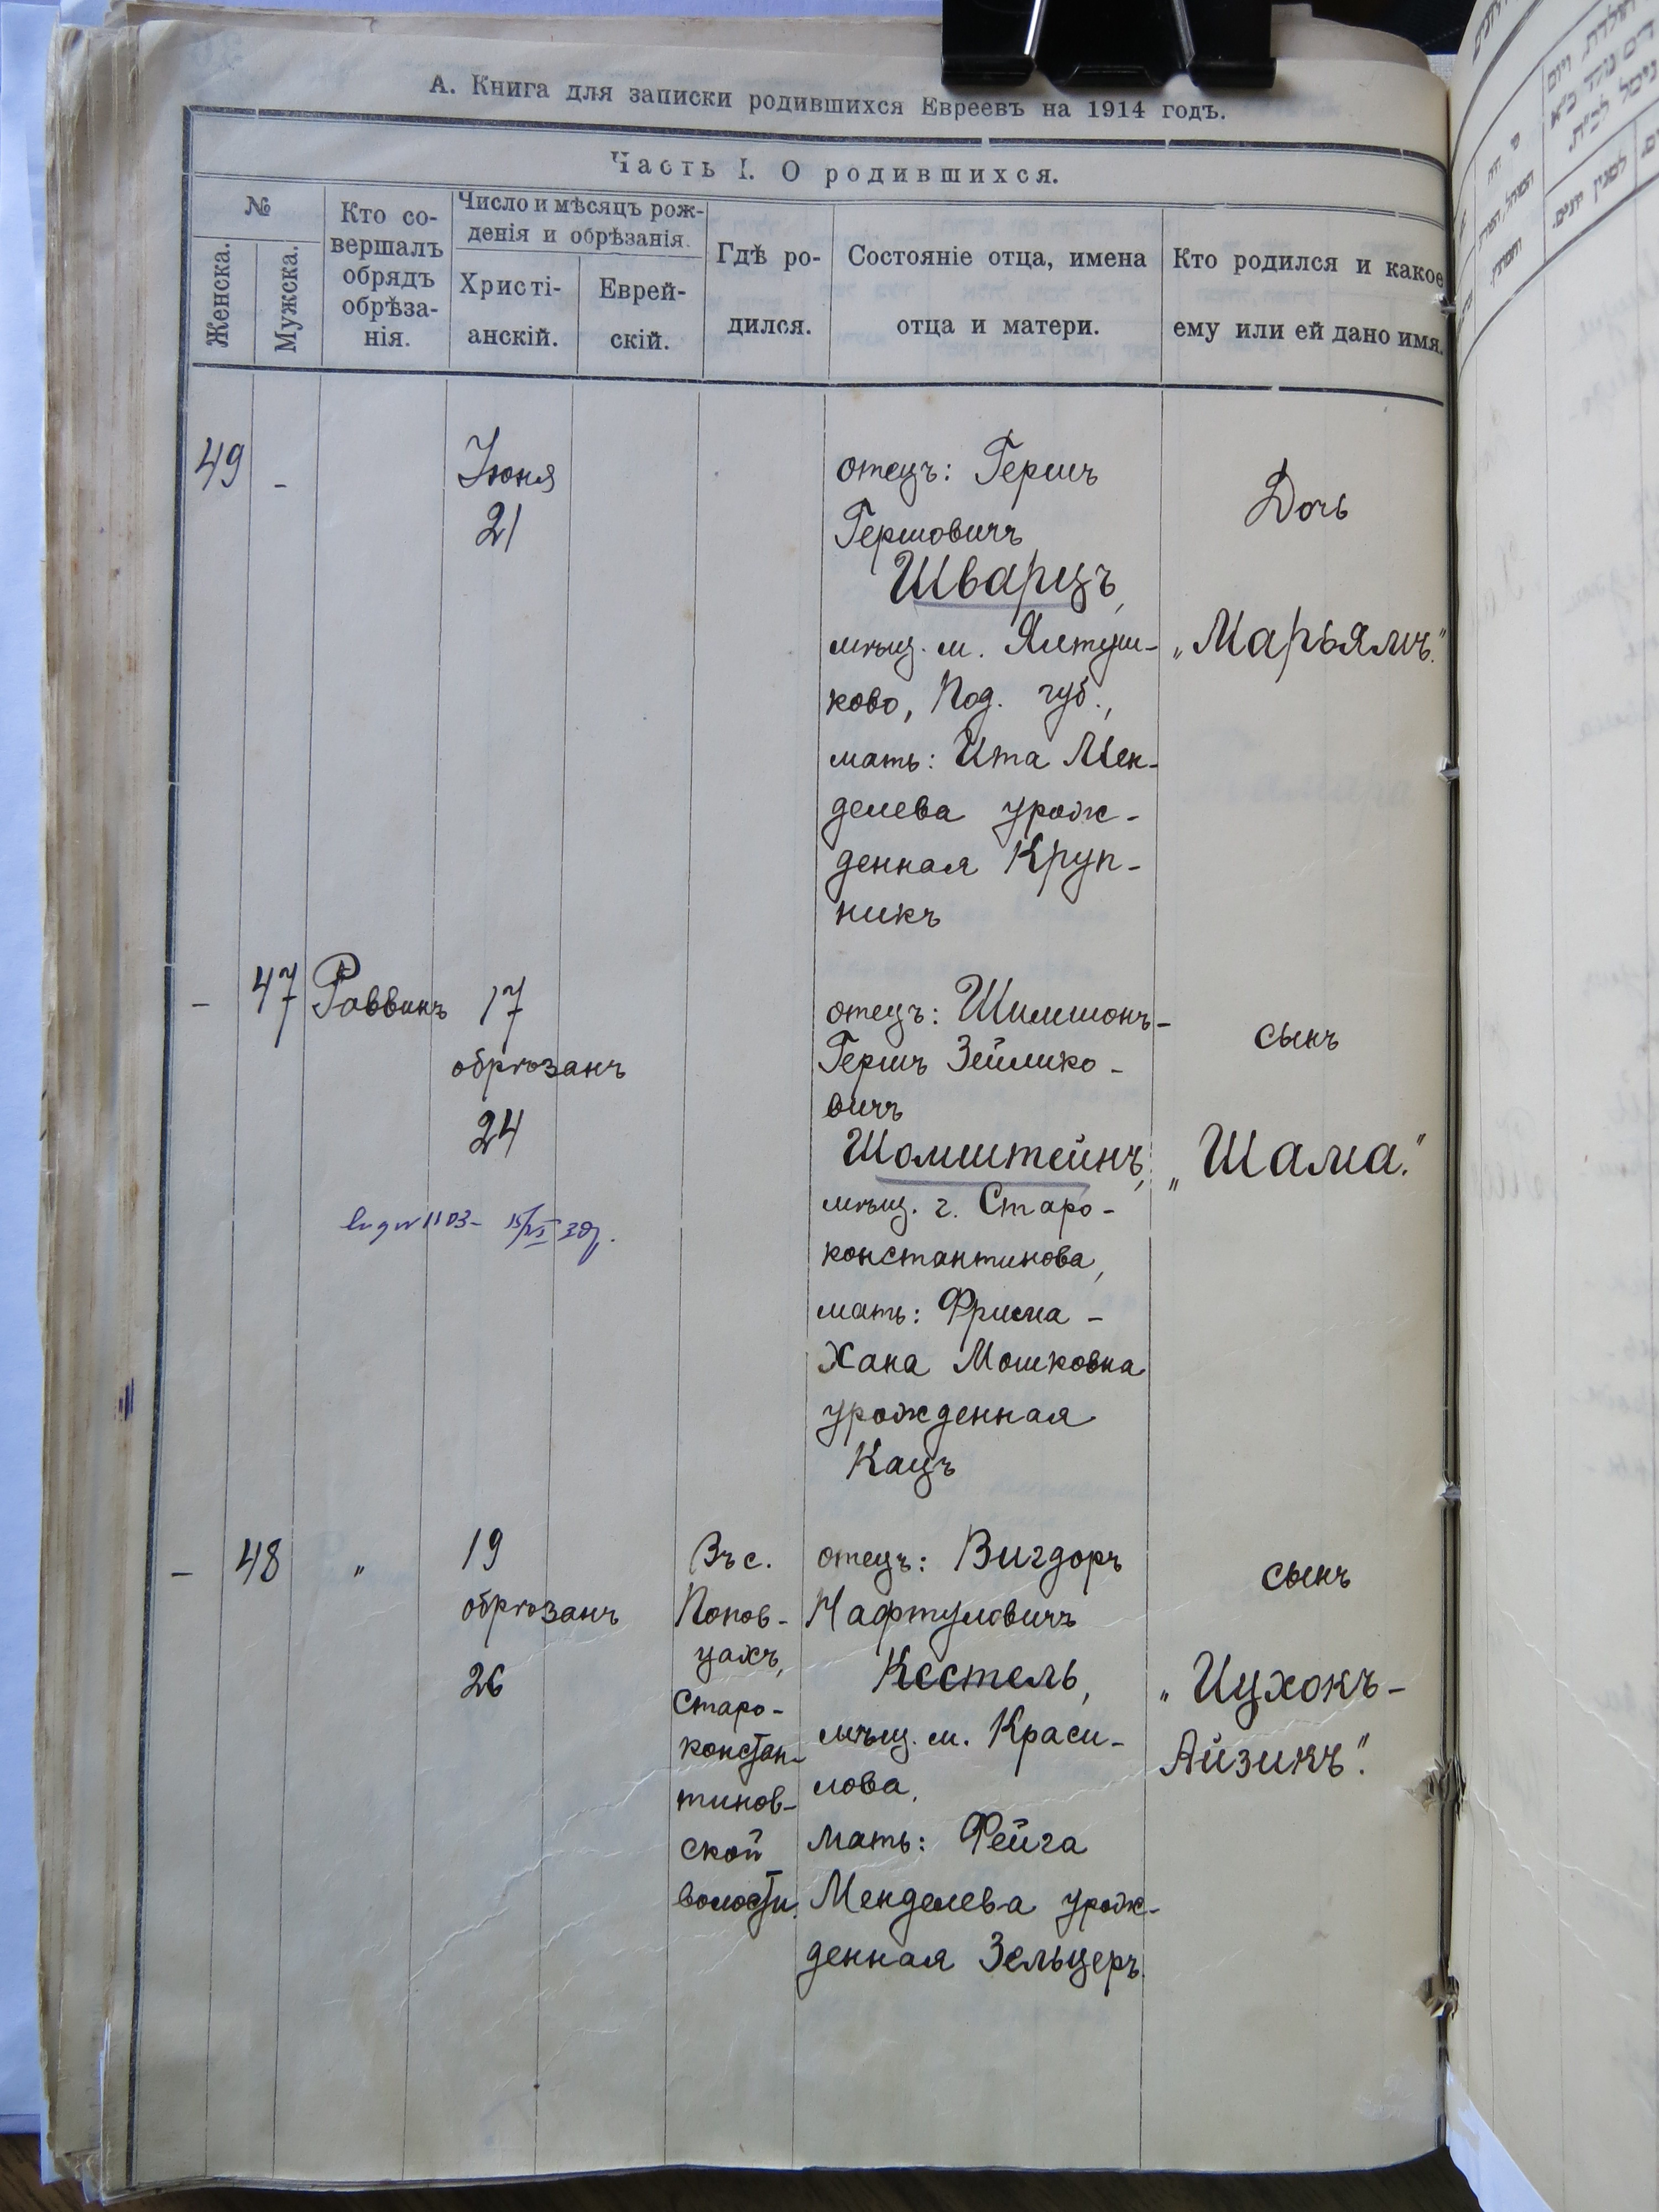 А. Книга для записки родившихся Евреевъ на 1914 годъ.
Часть I. О родившихся.
№
Женска.
Мужска.
Кто со-
вершалъ
обрядъ
обрѣза-
нія.
Число и мѣсяцъ рож-
денія и обрѣзанія.
Христі-
анскій.
Еврей-
скій.
Гдѣ ро-
дился.
Состояніе отца, имена
отца и матери.
Кто родился и какое
ему или ей дано имя.
49
-
Іюня
21
отецъ: Гершъ
Гершовичъ
Шварцъ,
мѣщ. м. Ялтуш-
ково, Под. губ.,
мать: Ита Мен-
делева урож-
денная Круп-
никъ
Дочь
„Марьямъ."
-
47
Раввинъ
17
обрѣзанъ
24
отецъ: Шимшонъ-
Гершъ Зейлико-
вичъ
Шомштейнъ,
мѣщ. г. Старо-
константинова,
мать: Фрима-
Хана Мошковна
урожденная
Кацъ
сынъ
„Шама."
-
48
"
19
обрѣзанъ
26
Въ с.
Попов-
цахъ,
Старо-
констан-
тинов-
ской
волости.
отецъ: Вигдоръ
Нафтуловичъ
Кестель,
мѣщ. м. Краси-
лова,
мать: Фейга
Менделева урож-
денная Зельцеръ.
сынъ
„Ицхокъ-
Айзикъ."